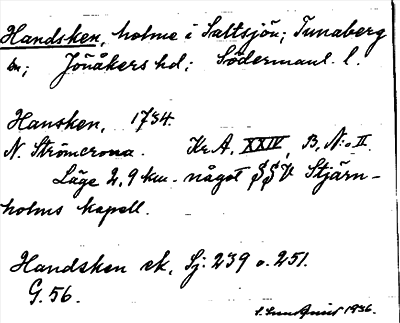 Handsken, holme i Saltsjön; Tunaberg
sn; Jönåkers hd; Södermanl. l.
Hansken, 1734.
N. Strömcrona. Kr.A. XXIV, B, N:o II.
Läge 2,9 km. något SSV Stjärn-
holms kapell.
Handsken sk, Sj: 239 o. 251.
G. 56.
1936.